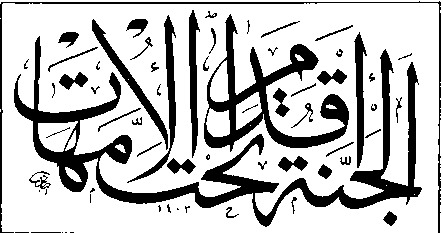 الجنة تحت أقدام الأمهات
١٤٠٢